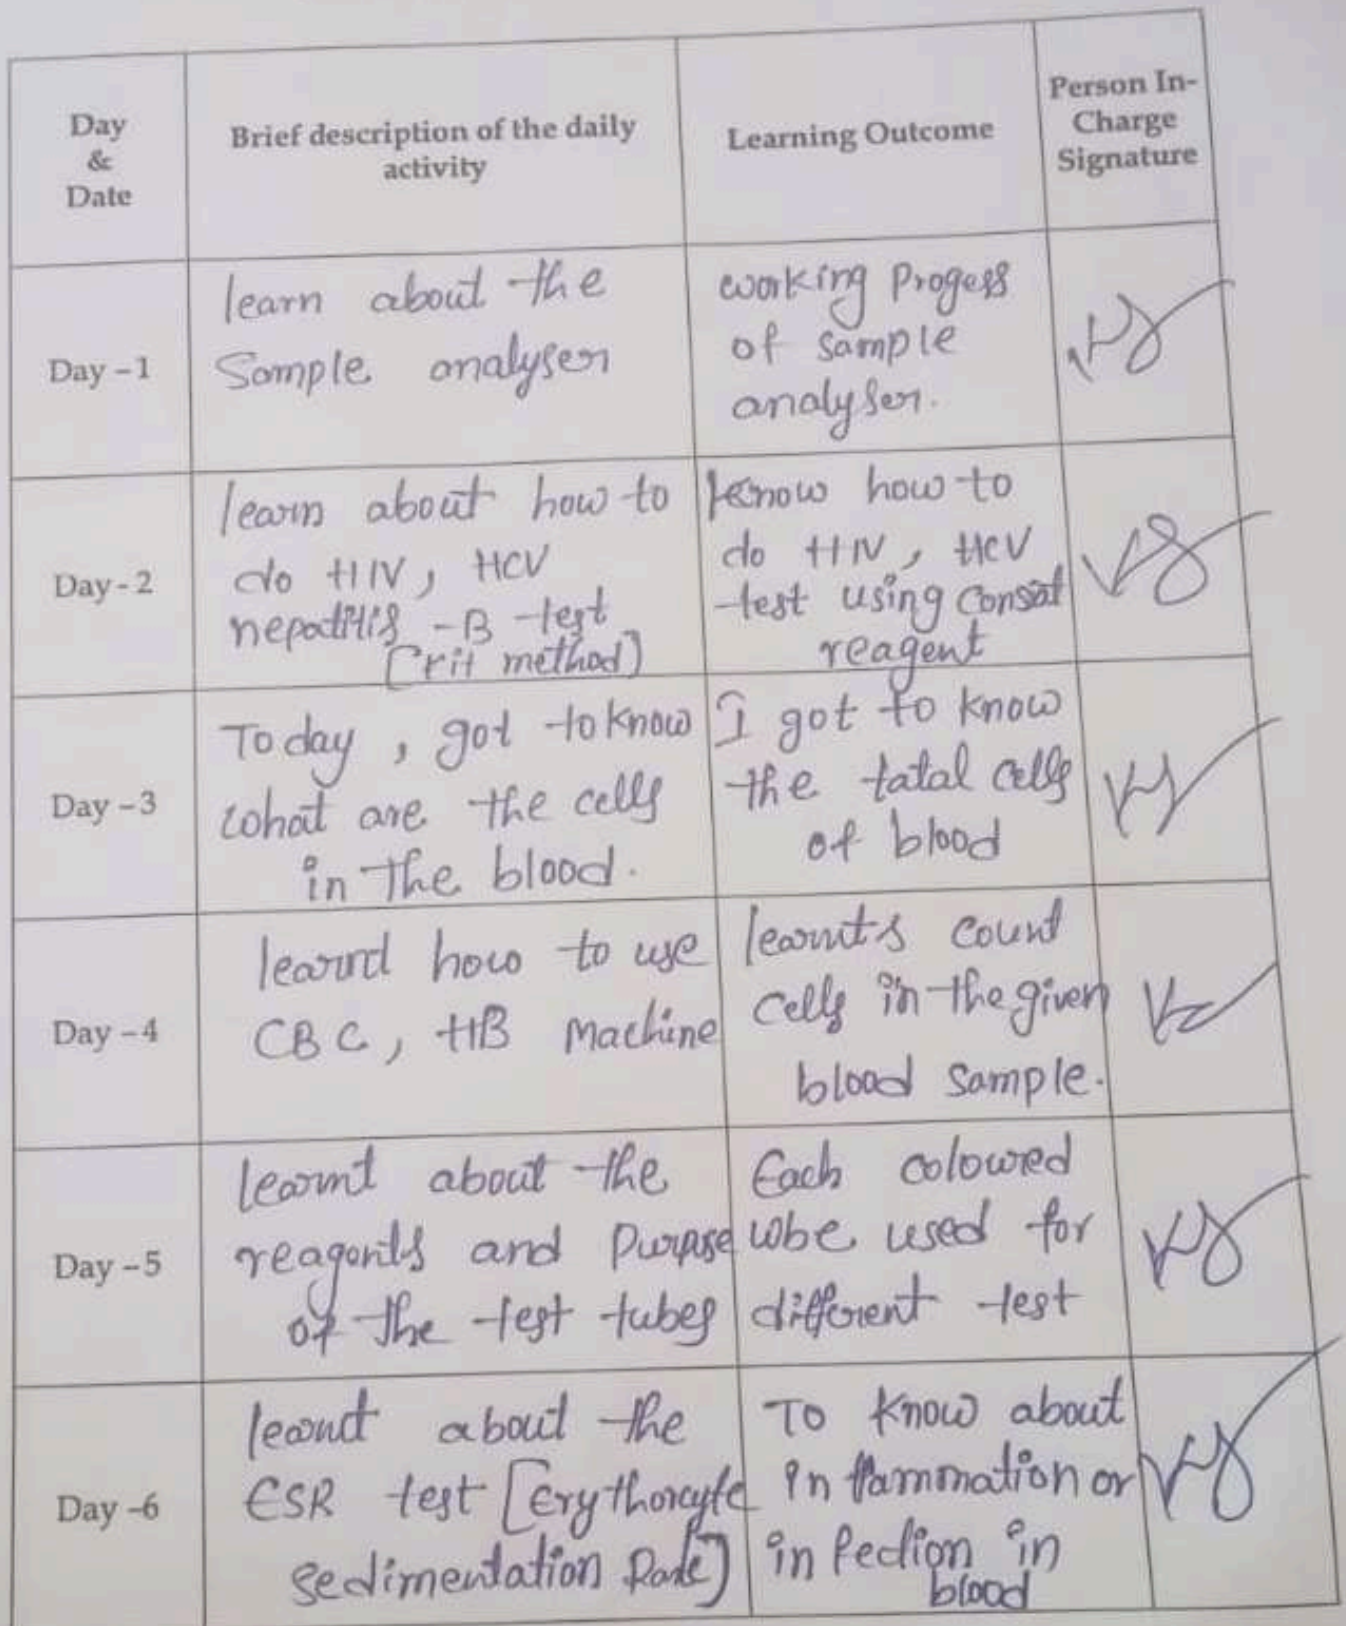 Day
&
Date
Brief description of the daily
activity
Learning Outcome
Person In-
Charge
Signature
Day - 1
learn about the
Sample analyser
working Progess
of sample
analyser.
Day - 2
learn about how to
do HIV, HCV
hepatitis -B test
[rit method]
know how to
do HIV, HCV
test using
reagent
Day - 3
Today, got to know
what are the cells
in the blood.
I got to know
the tatal cells
of blood
Day - 4
learnd how to use
CBC, HB Machine
learnts count
cells in the given
blood sample.
Day - 5
learnt about the
reagents and Purpose
of the test tubes
Each coloured
used for
different test
Day -6
learnt about the
ESR test [Erythorcyte
sedimentation Rate]
To know about
inflammation or
infection in
blood